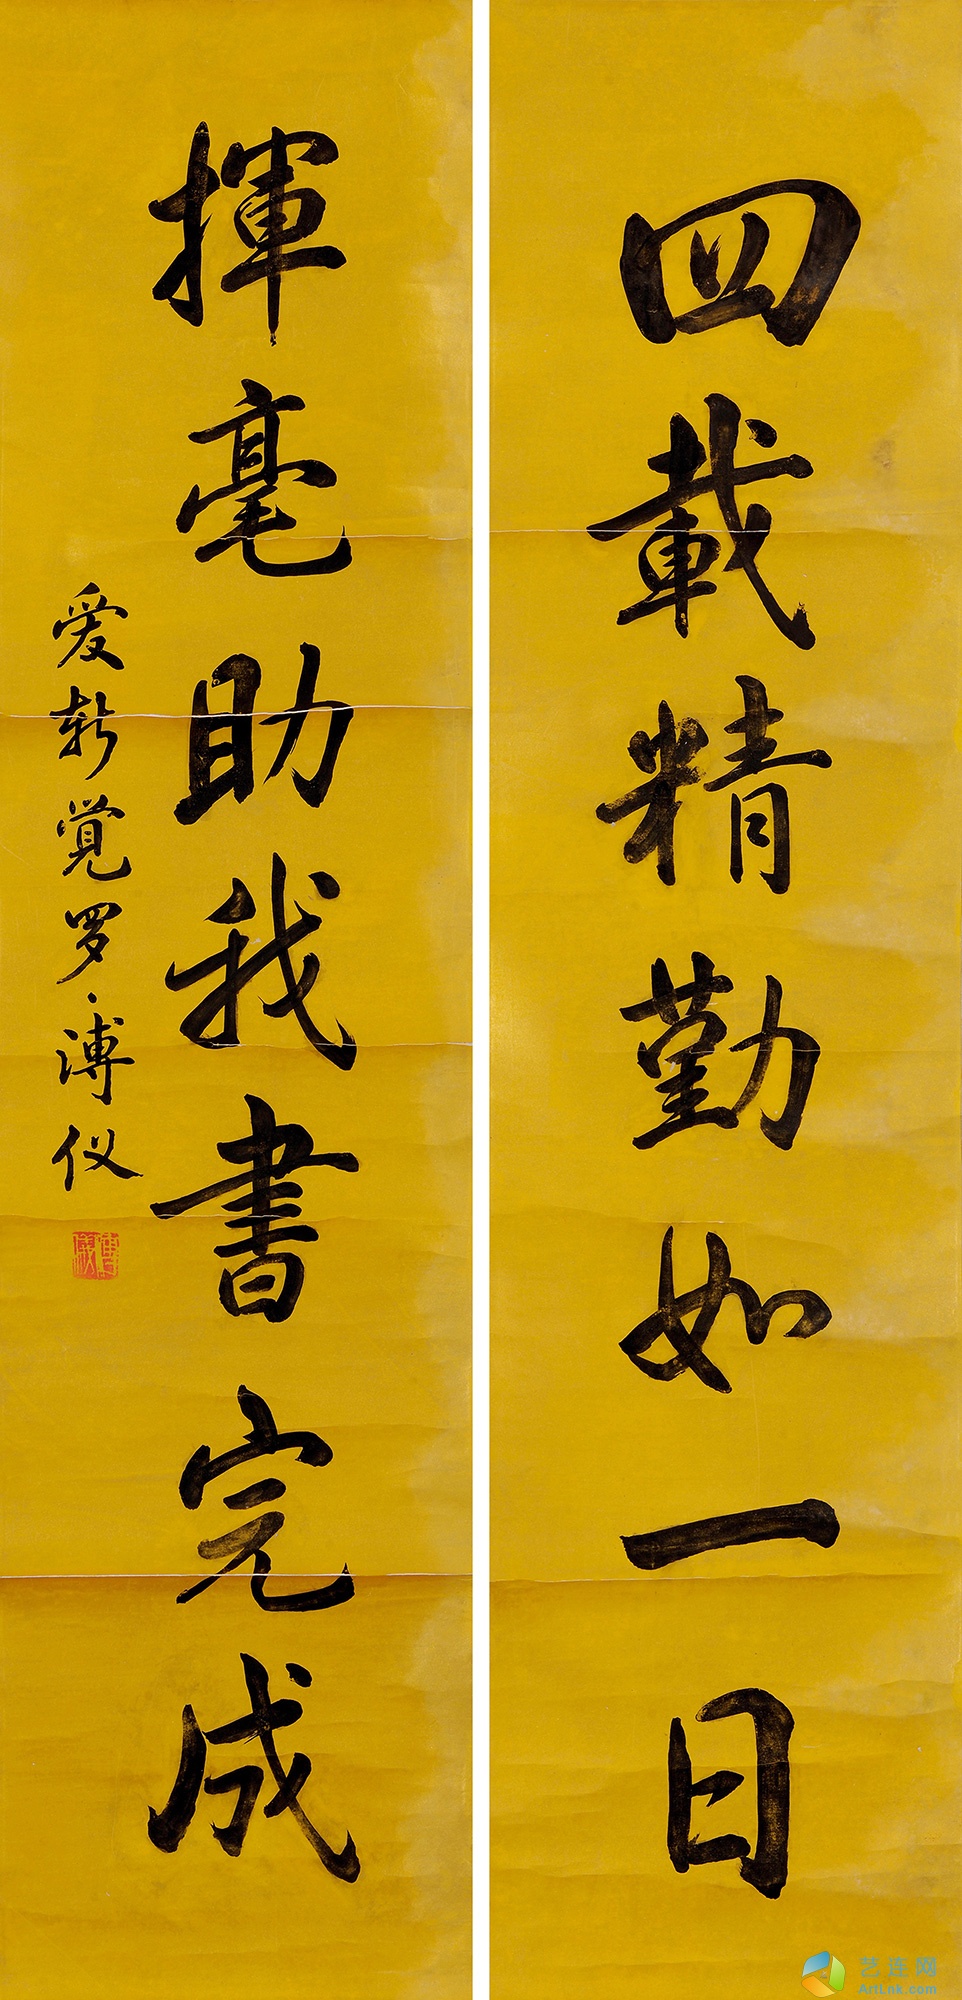 四載精勤如一日
揮毫助我書完成
爱新觉罗·溥仪
溥儀
艺连网
ArtLnk.com